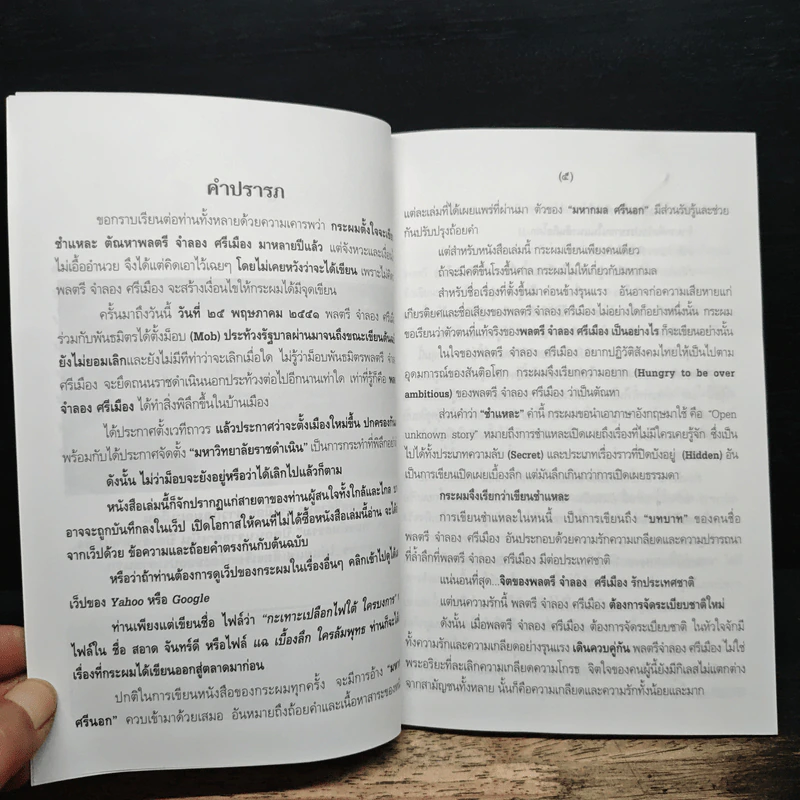 คำปรารภ
ขอกราบเรียนต่อท่านทั้งหลายด้วยความเคารพว่า กระผมตั้งใจจะเขีย
ชำแหละ ตัณหาพลตรี จำลอง ศรีเมือง มาหลายปีแล้ว แต่จังหวะและเงื่อน
ไม่เอื้ออำนวย จึงได้แต่คิดเอาไว้เฉยๆ โดยไม่เคยหวังว่าจะได้เขียน เพราะไม่คิด
พลตรี จำลอง ศรีเมือง จะสร้างเงื่อนไขให้กระผมได้มีจุดเขียน
ครั้นมาถึงวันนี้ วันที่ ๒๕ พฤษภาคม ๒๕๕๑ พลตรี จำลอง ศรีเมื
ร่วมกับพันธมิตรได้ตั้งม็อบ (Mob) ประท้วงรัฐบาลผ่านมาจนถึงขณะเขียนต้นฉบั
ยังไม่ยอมเลิกและยังไม่มีทีท่าว่าจะเลิกเมื่อใด ไม่รู้ว่าม็อบพันธมิตรพลตรี จำ
ศรีเมือง จะยึดถนนราชดำเนินนอกประท้วงต่อไปอีกนานเท่าใด เท่าที่รู้คือ พล
จำลอง ศรีเมือง ได้ทำสิ่งพิลึกขึ้นในบ้านเมือง
ได้ประกาศตั้งเวทีถาวร แล้วประกาศว่าจะตั้งเมืองใหม่ขึ้น ปกครองกัน
พร้อมกับได้ประกาศจัดตั้ง “มหาวิทยาลัยราชดำเนิน” เป็นการกระทำที่พิลึกอย่า
ดังนั้น ไม่ว่าม็อบจะยังอยู่หรือว่าได้เลิกไปแล้วก็ตาม
หนังสือเล่มนี้ก็จักปรากฏแก่สายตาของท่านผู้สนใจทั้งใกล้และไกล
อาจจะถูกบันทึกลงในเว็ป เปิดโอกาสให้คนที่ไม่ได้ซื้อหนังสือเล่มนี้อ่าน จะได้
จากเว็ปด้วย ข้อความและถ้อยคำตรงกันกับต้นฉบับ
หรือว่าถ้าท่านต้องการดูเว็ปของกระผมในเรื่องอื่นๆ คลิกเข้าไปดูได้
เว็ปของ Yahoo หรือ Google
ท่านเพียงแต่เขียนชื่อ ไฟล์ว่า “กะเทาะเปลือกไฟใต้ ใครบงการ”
ไฟล์ใน ชื่อ สอาด จันทร์ดี หรือไฟล์ แฉ เบื้องลึก ใครล้มพุทธ ท่านก็จะได้
เรื่องที่กระผมได้เขียนออกสู่ตลาดมาก่อน
ปกติในการเขียนหนังสือของกระผมทุกครั้ง จะมีการอ้าง “มหา
ศรีนอก” ควบเข้ามาด้วยเสมอ อันหมายถึงถ้อยคำและเนื้อหาสาระของหนั
(๕)
แต่ละเล่มที่ได้เผยแพร่ที่ผ่านมา ตัวของ “มหากมล ศรีนอก” มีส่วนรับรู้และช่วย
กันปรับปรุงถ้อยคำ
แต่สำหรับหนังสือเล่มนี้ กระผมเขียนเพียงคนเดียว
ถ้าจะมีคดีขึ้นโรงขึ้นศาล กระผมไม่ให้เกี่ยวกับมหากมล
สำหรับชื่อเรื่องที่ตั้งขึ้นมาค่อนข้างรุนแรง อันอาจก่อความเสียหายแก่
เกียรติยศและชื่อเสียงของพลตรี จำลอง ศรีเมือง ไม่อย่างใดก็อย่างหนึ่งนั้น กระผม
ขอเรียนว่าตัวตนที่แท้จริงของพลตรี จำลอง ศรีเมือง เป็นอย่างไร ก็จะเขียนอย่างนั้น
ในใจของพลตรี จำลอง ศรีเมือง อยากปฏิวัติสังคมไทยให้เป็นไปตาม
อุดมการณ์ของสันติอโศก กระผมจึงเรียกความอยาก (Hungry to be over
ambitious) ของพลตรี จำลอง ศรีเมือง ว่าเป็นตัณหา
ส่วนคำว่า “ชำแหละ” คำนี้ กระผมขอนำเอาภาษาอังกฤษมาใช้ คือ “Open
unknown story” หมายถึงการชำแหละเปิดเผยถึงเรื่องที่ไม่มีใครเคยรู้จัก ซึ่งเป็น
ไปได้ทั้งประเภทความลับ (Secret) และประเภทเรื่องราวที่ปิดบังอยู่ (Hidden) อัน
เป็นการเขียนเปิดเผยเบื้องลึก แต่มันลึกเกินกว่าการเปิดเผยธรรมดา
กระผมจึงเรียกว่าเขียนชำแหละ
การเขียนชำแหละในหนนี้ เป็นการเขียนถึง “บทบาท” ของคนชื่อ
พลตรี จำลอง ศรีเมือง อันประกอบด้วยความรักความเกลียดและความปรารถนา
ที่ล้ำลึกที่พลตรี จำลอง ศรีเมือง มีต่อประเทศชาติ
แน่นอนที่สุด...จิตของพลตรี จำลอง ศรีเมือง รักประเทศชาติ
แต่บนความรักนี้ พลตรี จำลอง ศรีเมือง ต้องการจัดระเบียบชาติใหม่
ดังนั้น เมื่อพลตรี จำลอง ศรีเมือง ต้องการจัดระเบียบชาติ ในหัวใจจักมี
ทั้งความรักและความเกลียดอย่างรุนแรง เดินควบคู่กัน พลตรีจำลอง ศรีเมือง ไม่ใช่
พระอริยะที่ละเลิกความเกลียดความโกรธ จิตใจของคนผู้นี้ยังมีกิเลสไม่แตกต่าง
จากสามัญชนทั้งหลาย นั้นก็คือความเกลียดและความรักทั้งน้อยและมาก